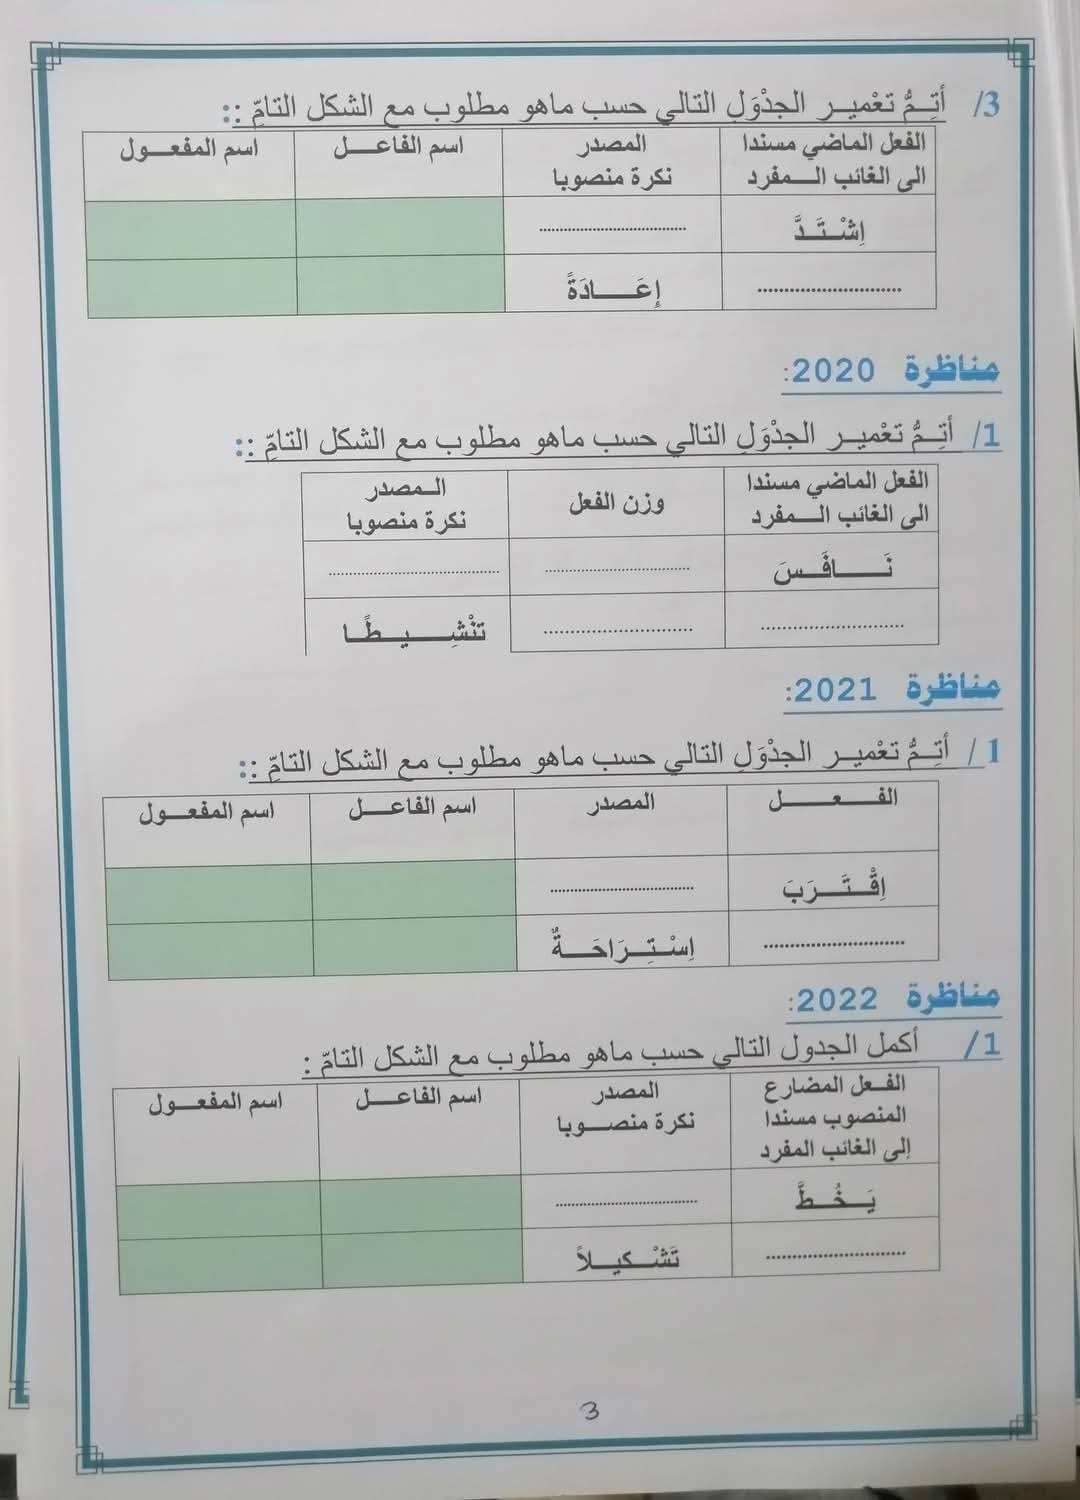 3/ أَتِمُّ تعْميـر الجدْوَلِ التالي حسب ماهو مطلوب مع الشكل التامّ ::
الفعل الماضي مسندا الى الغائب الـــمفرد
المصدر نكرة منصوبا
اسم الفاعــــل
اسم المفعـــول
اِشْــتَــدَّ
......................................
..............................
إِعَــــادَةً
مناظرة 2020:
1/ أَتِـمُّ تعْميـر الجدْوَلِ التالي حسب ماهو مطلوب مع الشكل التامّ ::
الفعل الماضي مسندا الى الغائب الـــمفرد
وزن الفعل
الـمصدر نكرة منصوبا
نَـــــافَــسَ
......................................
......................................
..............................
..............................
تنْشِـــــيــــطًــا
مناظرة 2021:
1/ أَتِـمُّ تعْميـر الجدْوَلِ التالي حسب ماهو مطلوب مع الشكل التامّ ::
الفـــــعـــــــل
المصدر
اسم الفاعــــل
اسم المفعـــول
اِقْــتَــرَبَ
......................................
..............................
اِسْـتِــرَاحَــــةٌ
مناظرة 2022:
1/ أكمل الجدول التالي حسب ماهو مطلوب مع الشكل التامّ :
الفــعل المضارع المنصوب مسندا إلى الغائب المفرد
المصدر نكرة منصـــوبا
اسم الفاعــــل
اسم المفعـــول
يَــخُــطَّ
......................................
..............................
تَشْــكيـــلاً
3